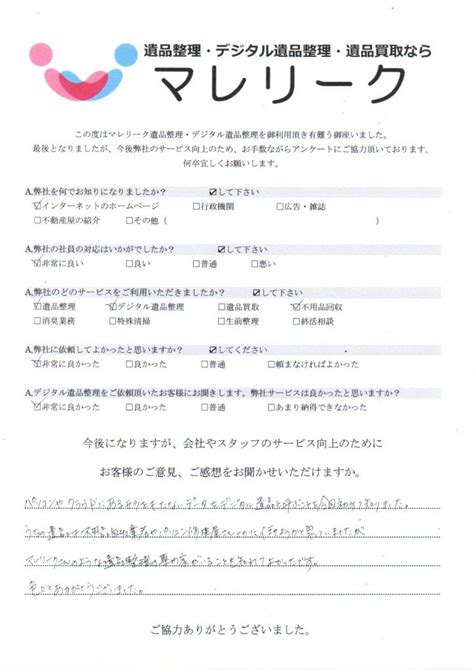 遺品整理・デジタル遺品整理・遺品買取なら
マレリーク
この度はマレリーク遺品整理・デジタル遺品整理を御利用頂き有難う御座いました。
最後となりましたが、今後弊社のサービス向上のため、お手数ながらアンケートにご協力頂いております。
何卒宜しくお願いします。
A.弊社を何でお知りになりましたか？ ☑して下さい
☑インターネットのホームページ □行政機関 □広告・雑誌
□不動産屋の紹介 □その他（ ）
A.弊社の社員の対応はいかがでしたか？ ☑して下さい
☑非常に良い □良い □普通 □悪い
A.弊社のどのサービスをご利用いただきましたか？ ☑して下さい
☑遺品整理 ☑デジタル遺品整理 □遺品買取 ☑不用品回収
□消臭業務 □特殊清掃 □生前整理 □終活相談
A.弊社に依頼してよかったと思いますか？ ☑してください
☑非常に良かった □良かった □普通 □頼まなければよかった
A.デジタル遺品整理をご依頼頂いたお客様にお聞きします。弊社サービスは良かったと思いますか？
☑非常に良かった □良かった □普通 □あまり納得できなかった
今後になりますが、会社やスタッフのサービス向上のために
お客様のご意見、ご感想をお聞かせいただけますか。
パソコンやクラウドにある形をもたないデータをデジタル遺品と呼ぶことを今回初めて知りました。
うちの遺品は不用品回収業者やパソコン修理屋さんとかに任せようかと思っていましたが
マレリークさんのような遺品整理の専門家がいることを知れてよかったです。
色々とありがとうございました。
ご協力ありがとうございました。